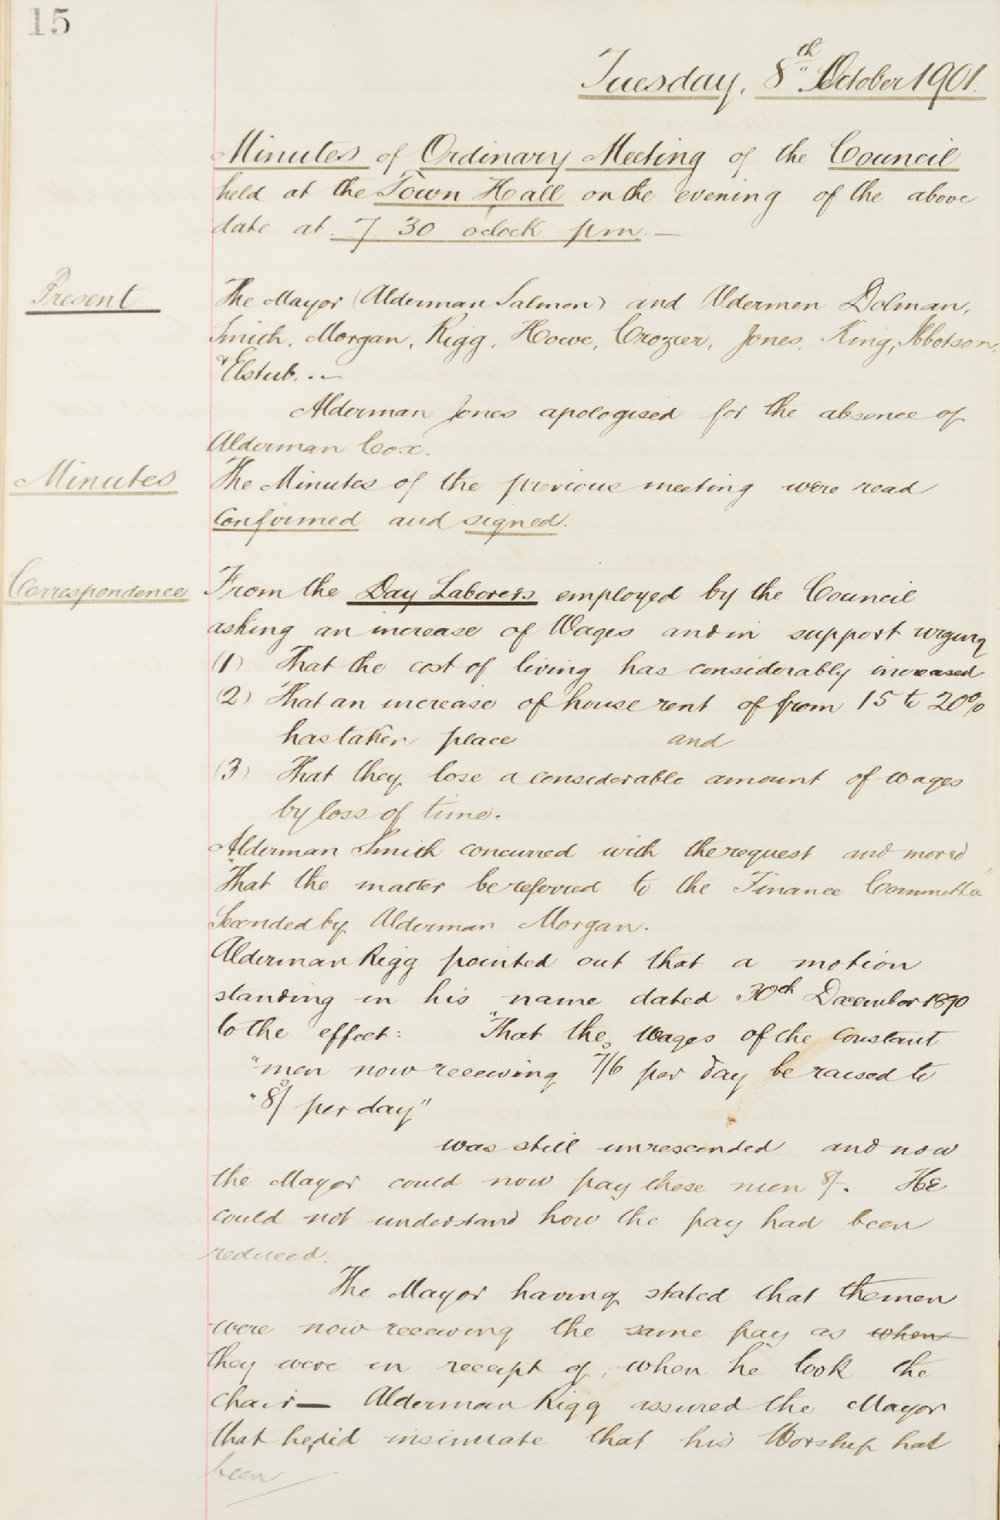 15
Tuesday, 8th October 1901.
Minutes of Ordinary Meeting of the Council
held at the Town Hall on the evening of the above
date at 7 30 oclock pm. —
Present
The Mayor (Alderman Salmon) and Aldermen Dolman,
Smith, Morgan, Rigg, Howe, Crozier, Jones, King, Ibbotson,
& Elstub. . —
Alderman Jones apologised for the absence of
Alderman Cox.
Minutes
The Minutes of the previous meeting were read
confirmed and signed.
Correspondence
From the Day Laborers employed by the Council
asking an increase of Wages and in support urging
(1) That the cost of living has considerably increased
(2) That an increase of house rent of from 15 to 20%
has taken place and
(3) That they lose a considerable amount of wages
by loss of time.
Alderman Smith concurred with the request and moved
"That the matter be referred to the Finance Committee"
Seconded by Alderman Morgan.
Alderman Rigg pointed out that a motion
standing in his name dated 30th December 1890
to the effect: "That the wages of the constant
"men now receiving 7/6 per day be raised to
"8/ per day"
was still unrescinded and now
the Mayor could now pay these men 8/. He
could not understand how the pay had been
reduced.
The Mayor having stated that the men
were now receiving the same pay as when
they were in receipt of, when he took the
chair — Alderman Rigg assured the Mayor
that he did insinuate that his Worship had
been